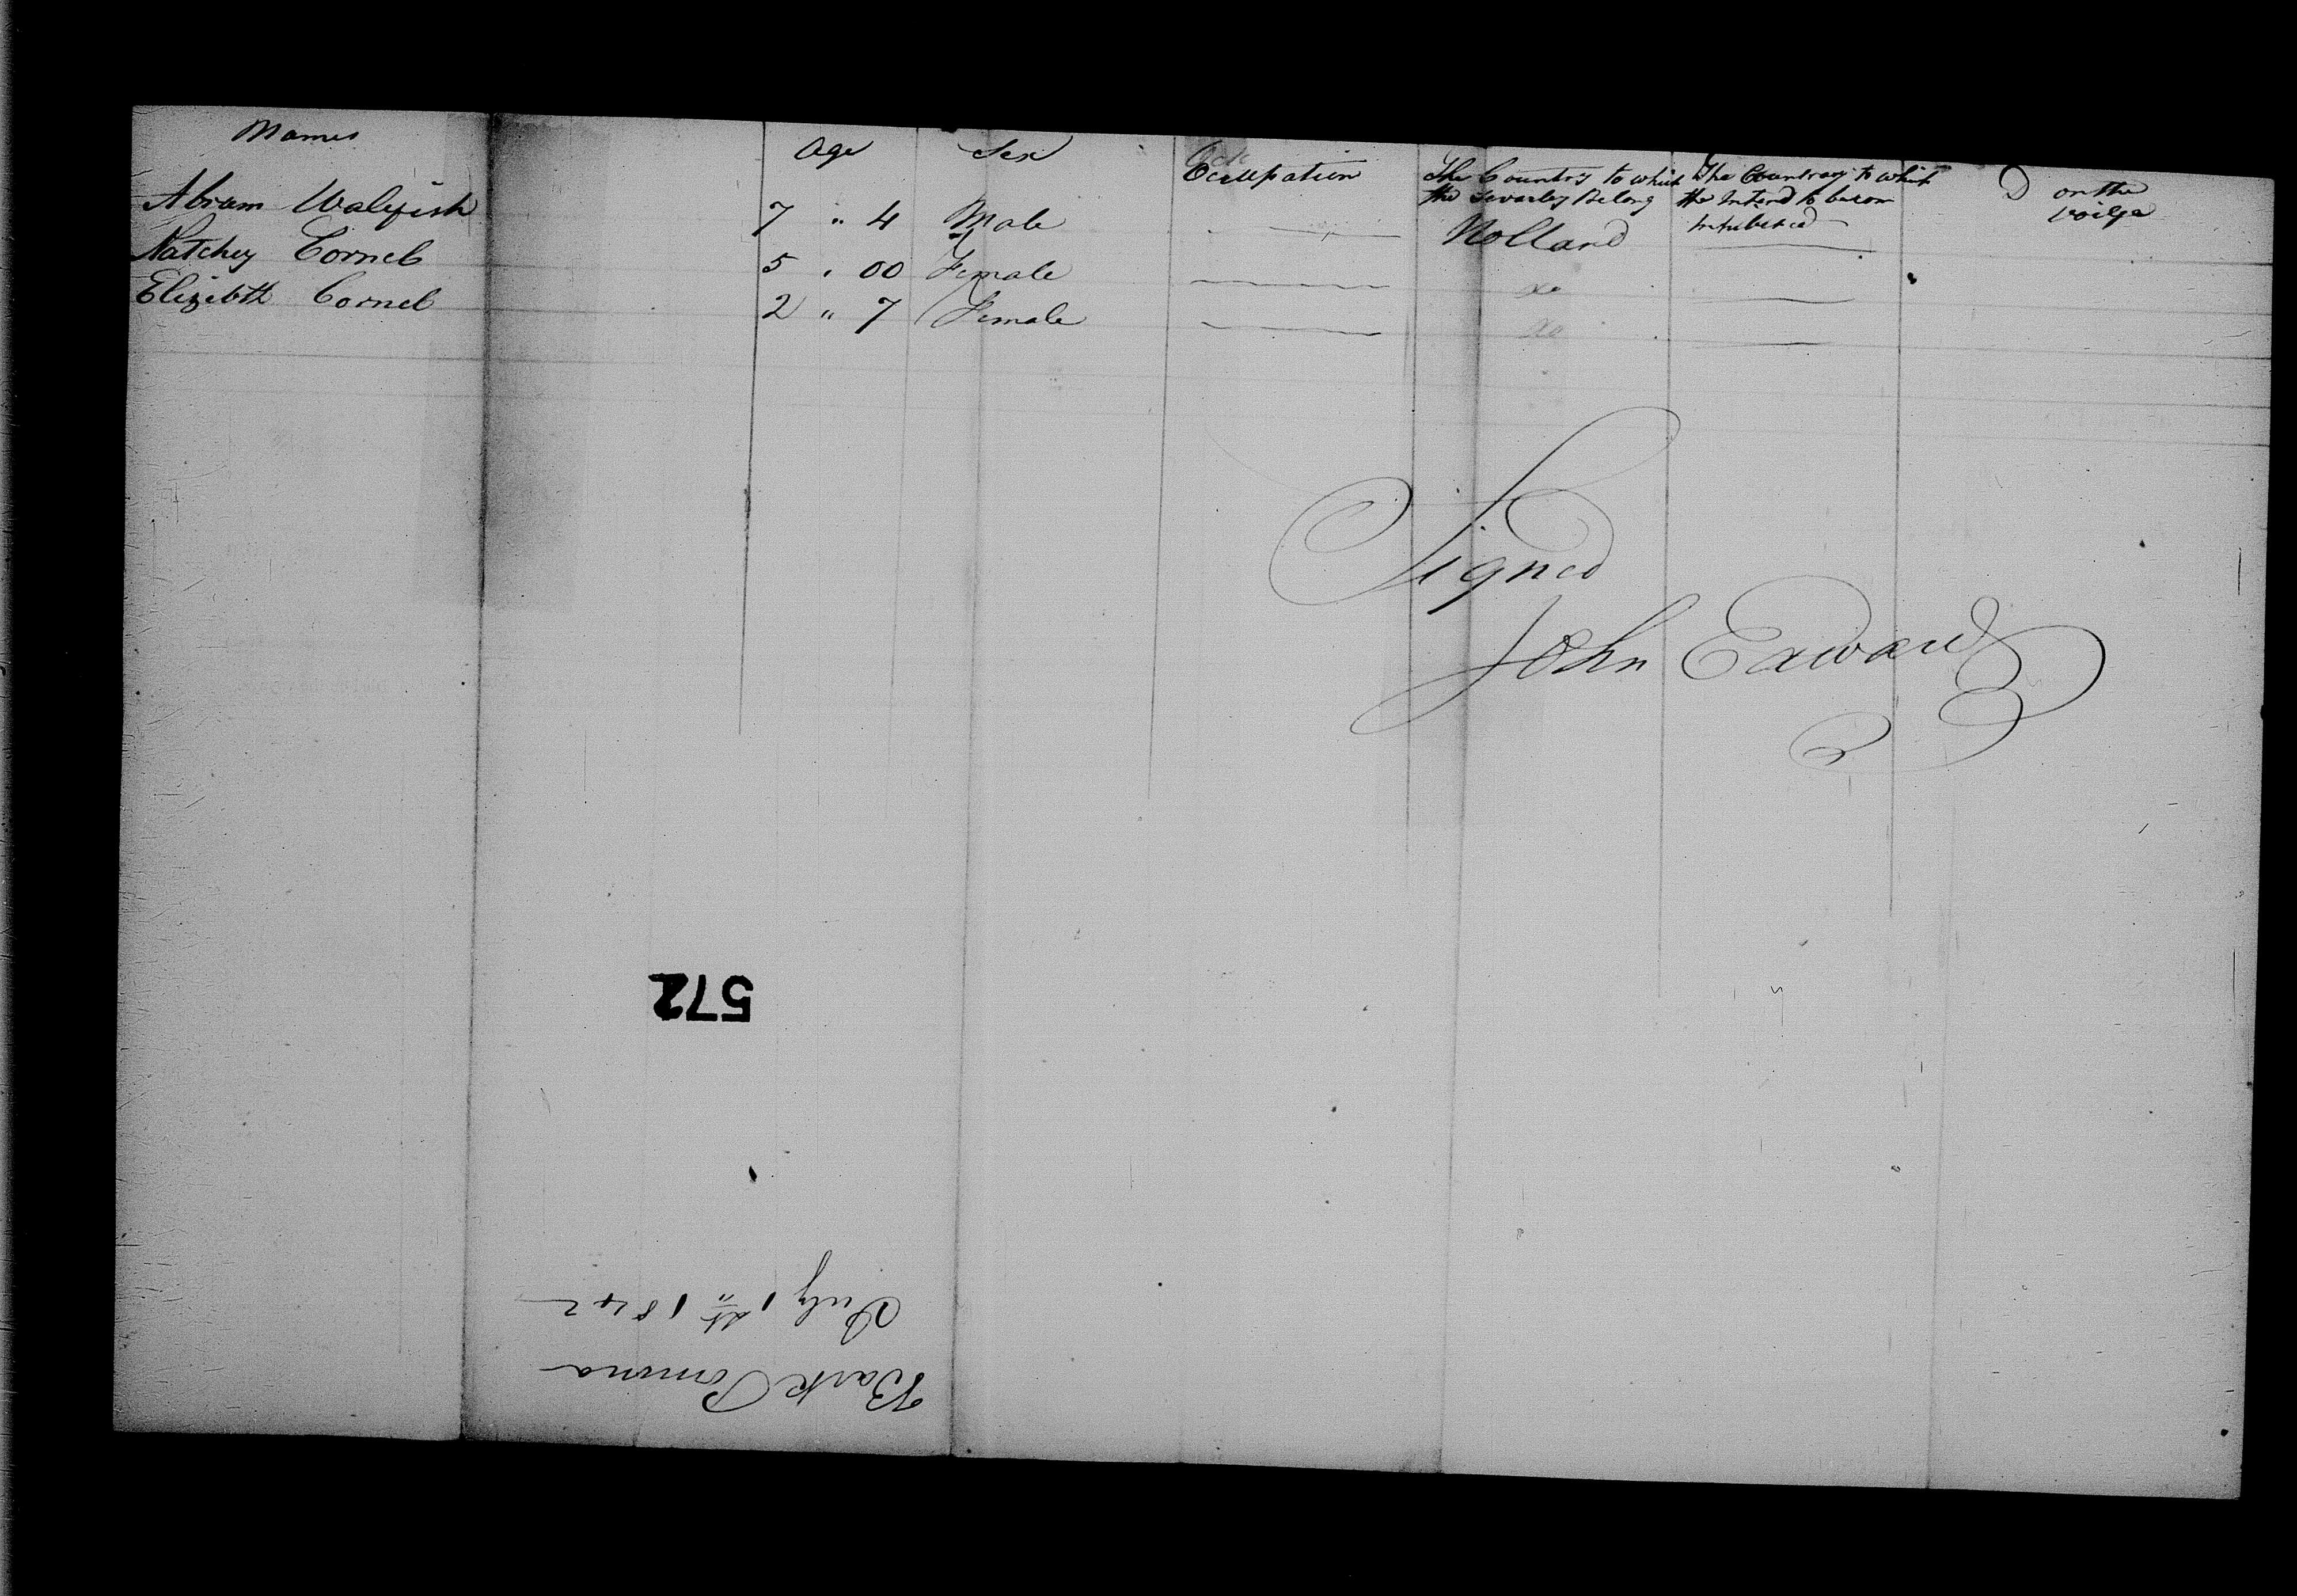 Names Age Sex Occupation The Country to which the Sevarley Belong The Countray to which the Intend to becom Inhabited D on the voilge
Abram Walifish 7 " 4 Male Holland
Natchey Cornel 5 " 00 Female Do
Elizebth Cornel 2 " 7 Female Do
Signed
John Edwards
572
Bark Pomona
July 1st 1842